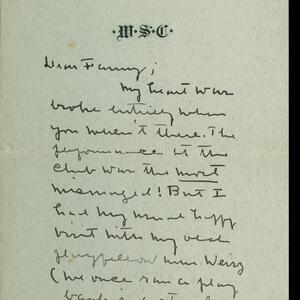 ·W·S·C·
Dear Fanny;
My heart was
broke entirely when
you weren't there. The
performance at the
club was the most
mismaged! But I
had my usual happy
visit with my old
playfellow Mrs. Weisz
(We once ran a play